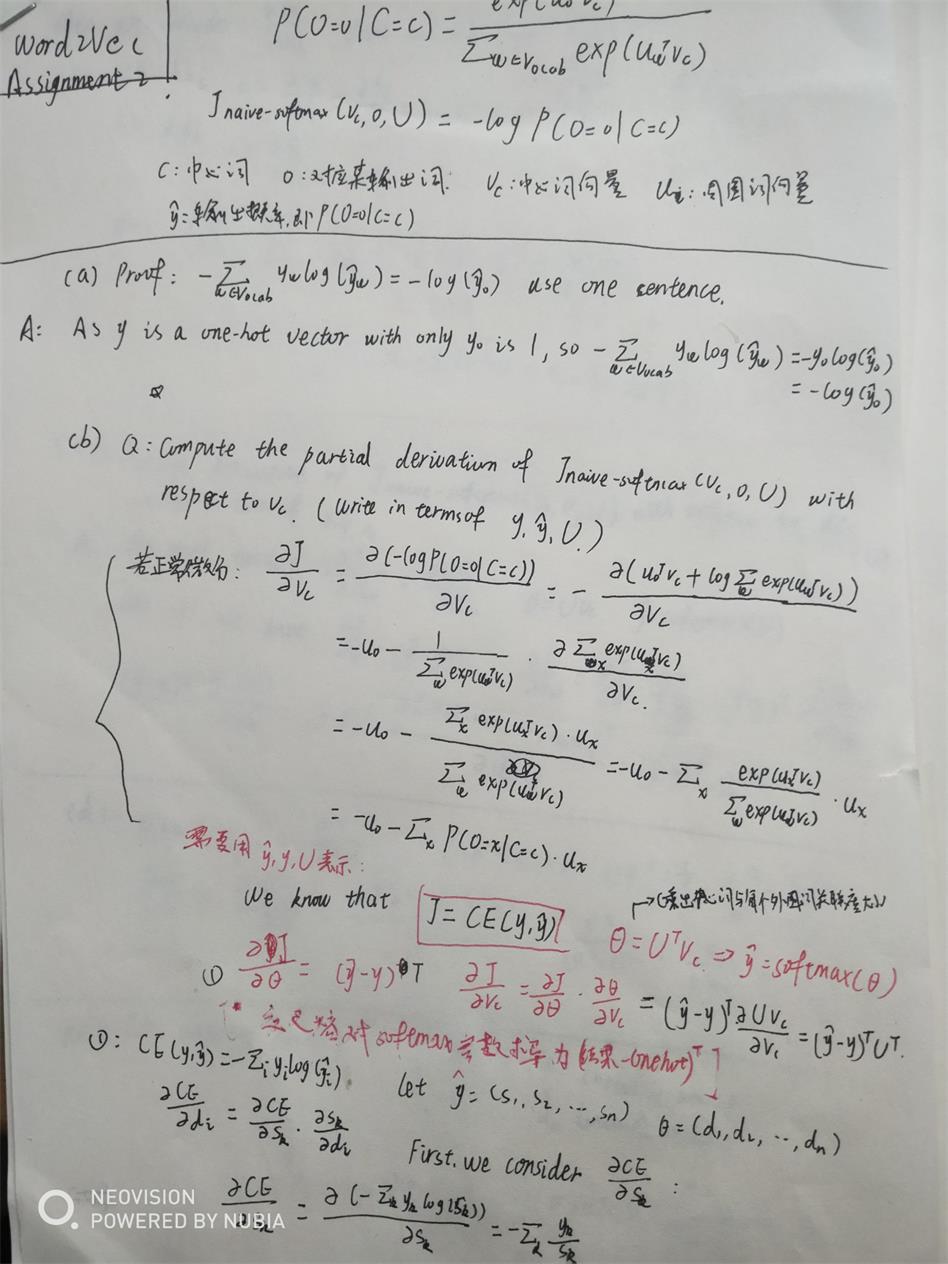 word2Vec
Assignment 2
P(O=o|C=c) = exp(u_o^T v_c) / Σ_{w∈Vocab} exp(u_w^T v_c)
J naive-softmax (v_c, o, U) = -log P(O=o|C=c)
C:中心词 O:对应某输出词. V_c:中心词向量 U_i:周围词向量
ŷ=输出概率,即P(O=o|C=c)
(a) Proof: -Σ_{w∈Vocab} y_w log(ŷ_w) = -log(ŷ_o) use one sentence.
A: As y is a one-hot vector with only y_o is 1, so -Σ_{w∈Vocab} y_w log(ŷ_w) = -y_o log(ŷ_o)
= -log(ŷ_o)
(b) Q: Compute the partial derivation of J naive-softmax (v_c, o, U) with
respect to v_c. (write in terms of y, ŷ, U.)
若正常微分: ∂J/∂V_c = ∂(-log P(O=o|C=c))/∂V_c = - ∂(u_o^T v_c + log Σ_w exp(u_w^T v_c))/∂V_c
= -u_o - 1/(Σ_w exp(u_w^T v_c)) · ∂Σ_x exp(u_x^T v_c)/∂V_c.
= -u_o - Σ_x exp(u_x^T v_c)·u_x / Σ_w exp(u_w^T v_c) = -u_o - Σ_x exp(u_x^T v_c)/Σ_w exp(u_w^T v_c) · u_x
= -u_o - Σ_x P(O=x|C=c)·u_x
需要用 ŷ, y, U 表示:
We know that J = CE(y, ŷ)
θ = U^T V_c. ⇒ ŷ = softmax(θ)
① ∂J/∂θ = (ŷ-y)^T ∂J/∂V_c = ∂J/∂θ · ∂θ/∂V_c = (ŷ-y)^T ∂UV_c/∂V_c = (ŷ-y)^T U^T.
[* 交叉熵对softmax参数求导为(结果-onehot)^T]
①: CE(y,ŷ) = -Σ_i y_i log(ŷ_i) Let ŷ = (s_1, s_2, ..., s_n) θ = (d_1, d_2, ..., d_n)
∂CE/∂d_i = ∂CE/∂s_k · ∂s_k/∂d_i First, we consider ∂CE/∂s_k :
∂CE/∂s_k = ∂(-Σ_k y_k log(s_k))/∂s_k = -Σ_k y_k/s_k
NEOVISION
POWERED BY NUBIA